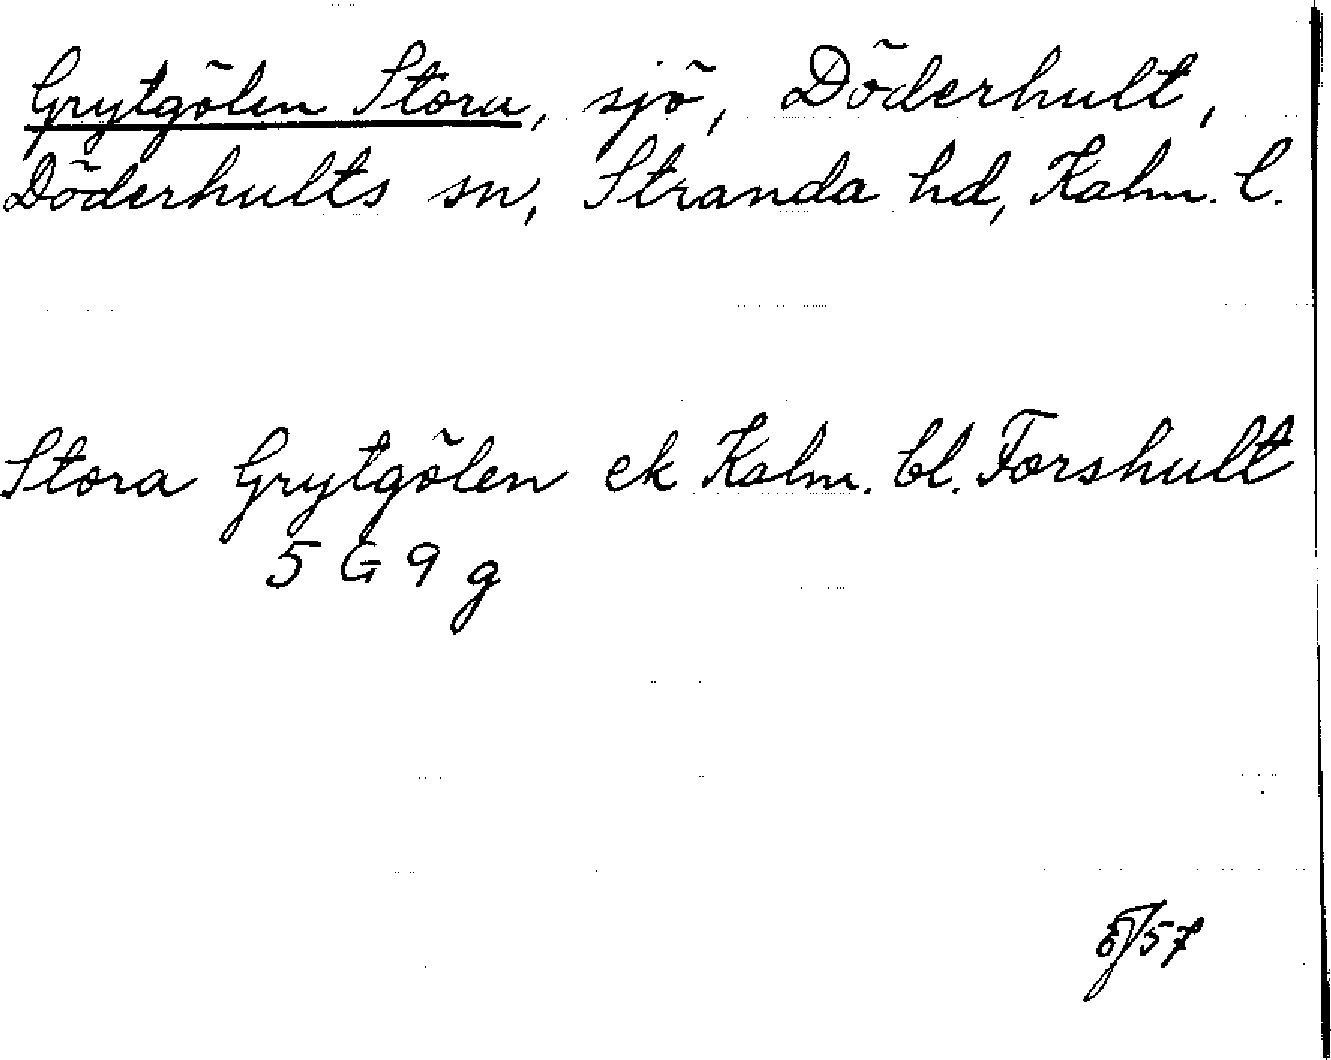 Grytgölen Stora, sjö, Döderhult,
Döderhults sn, Stranda hd, Kalm. l.
Stora Grytgölen ek Kalm. bl. Forshult
5 G 9 g